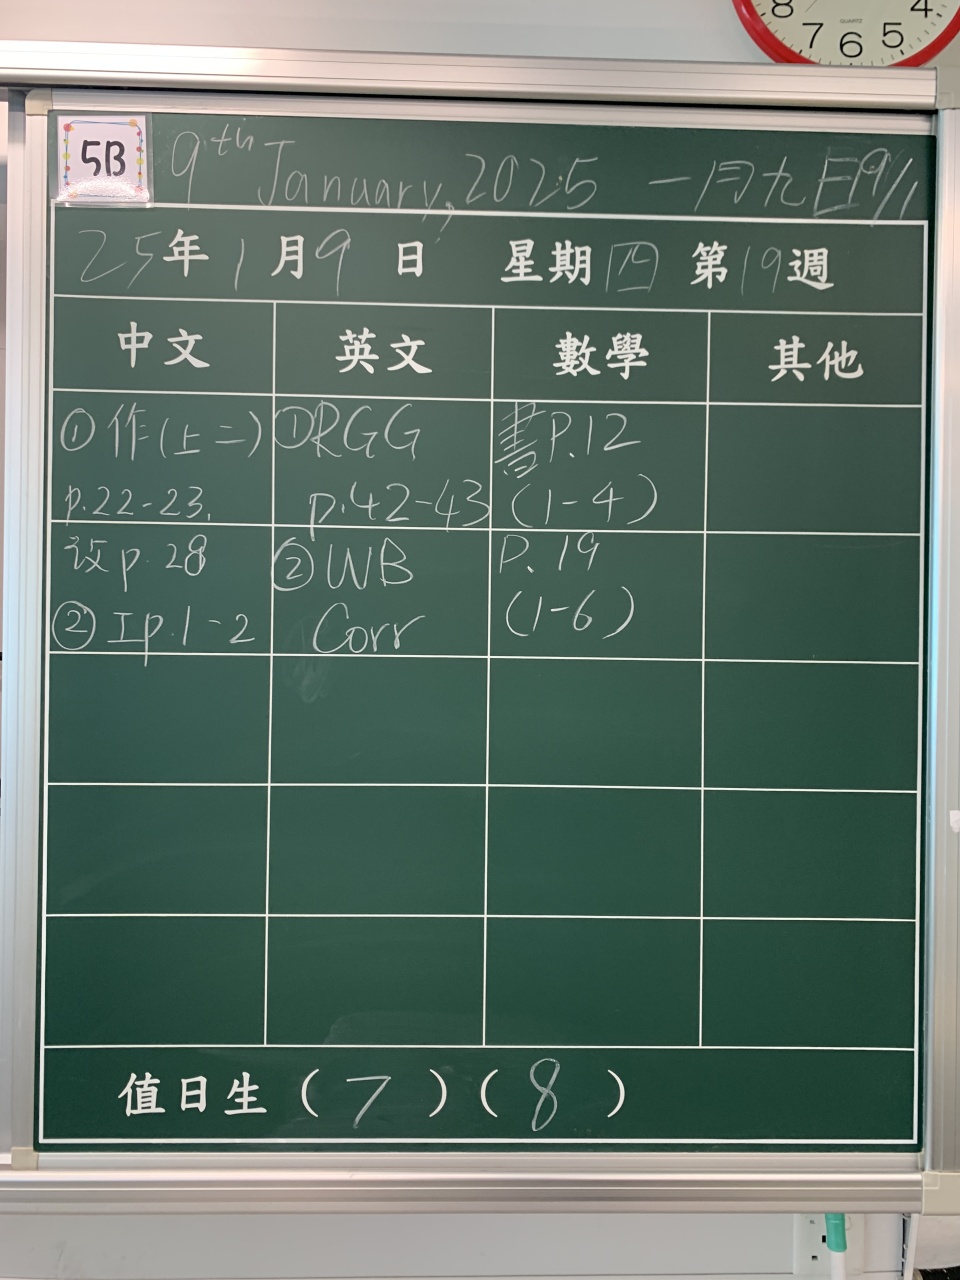 8 7 6 5 4
QUARTZ
5B
9th January, 2025 一月九日 9/1
25年1月9日 星期四 第19週
中文 英文 數學 其他
①作(上二)
p.22-23.
改p.28
②工p.1-2
①RGG
p.42-43
②WB
Corr
書P.12
(1-4)
P.19
(1-6)
值日生(7)(8)